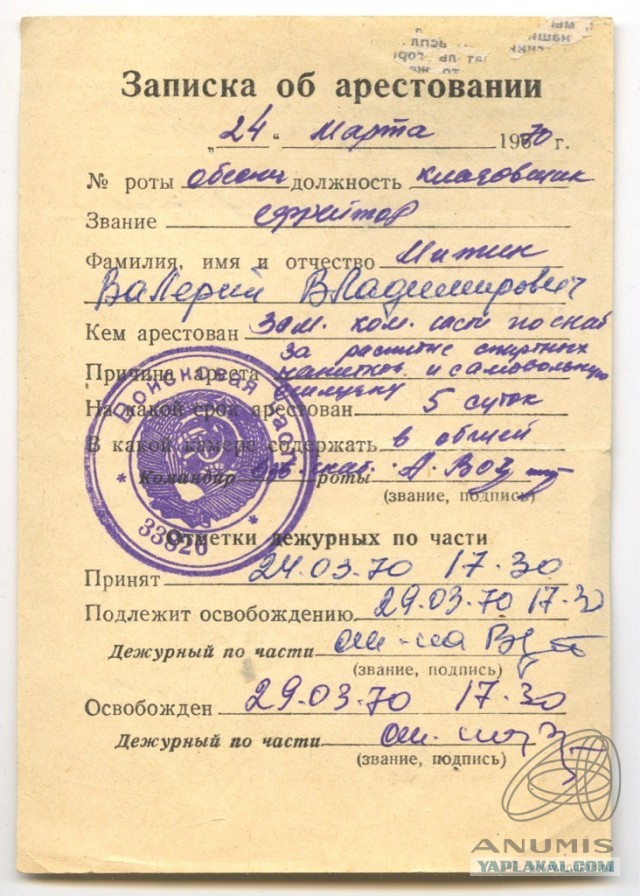 Записка об арестовании
„24“ марта 1970 г.
№ роты обсонч должность кладовщик
Звание ефрейтор
Фамилия, имя и отчество Митин
Валерий Владимирович
Кем арестован зам. ком. части по снаб
Причина ареста за распитие спиртных
напитков и самовольную
отлучку
На какой срок арестован 5 суток
В какой камере содержать в общей
Командир роты
(звание, подпись)
Войсковая часть
33820
Отметки дежурных по части
Принят 24.03.70 17.30
Подлежит освобождению 29.03.70 17.30
Дежурный по части
(звание, подпись)
Освобожден 29.03.70 17.30
Дежурный по части
(звание, подпись)
ANUMIS
YAPLAKAL.COM